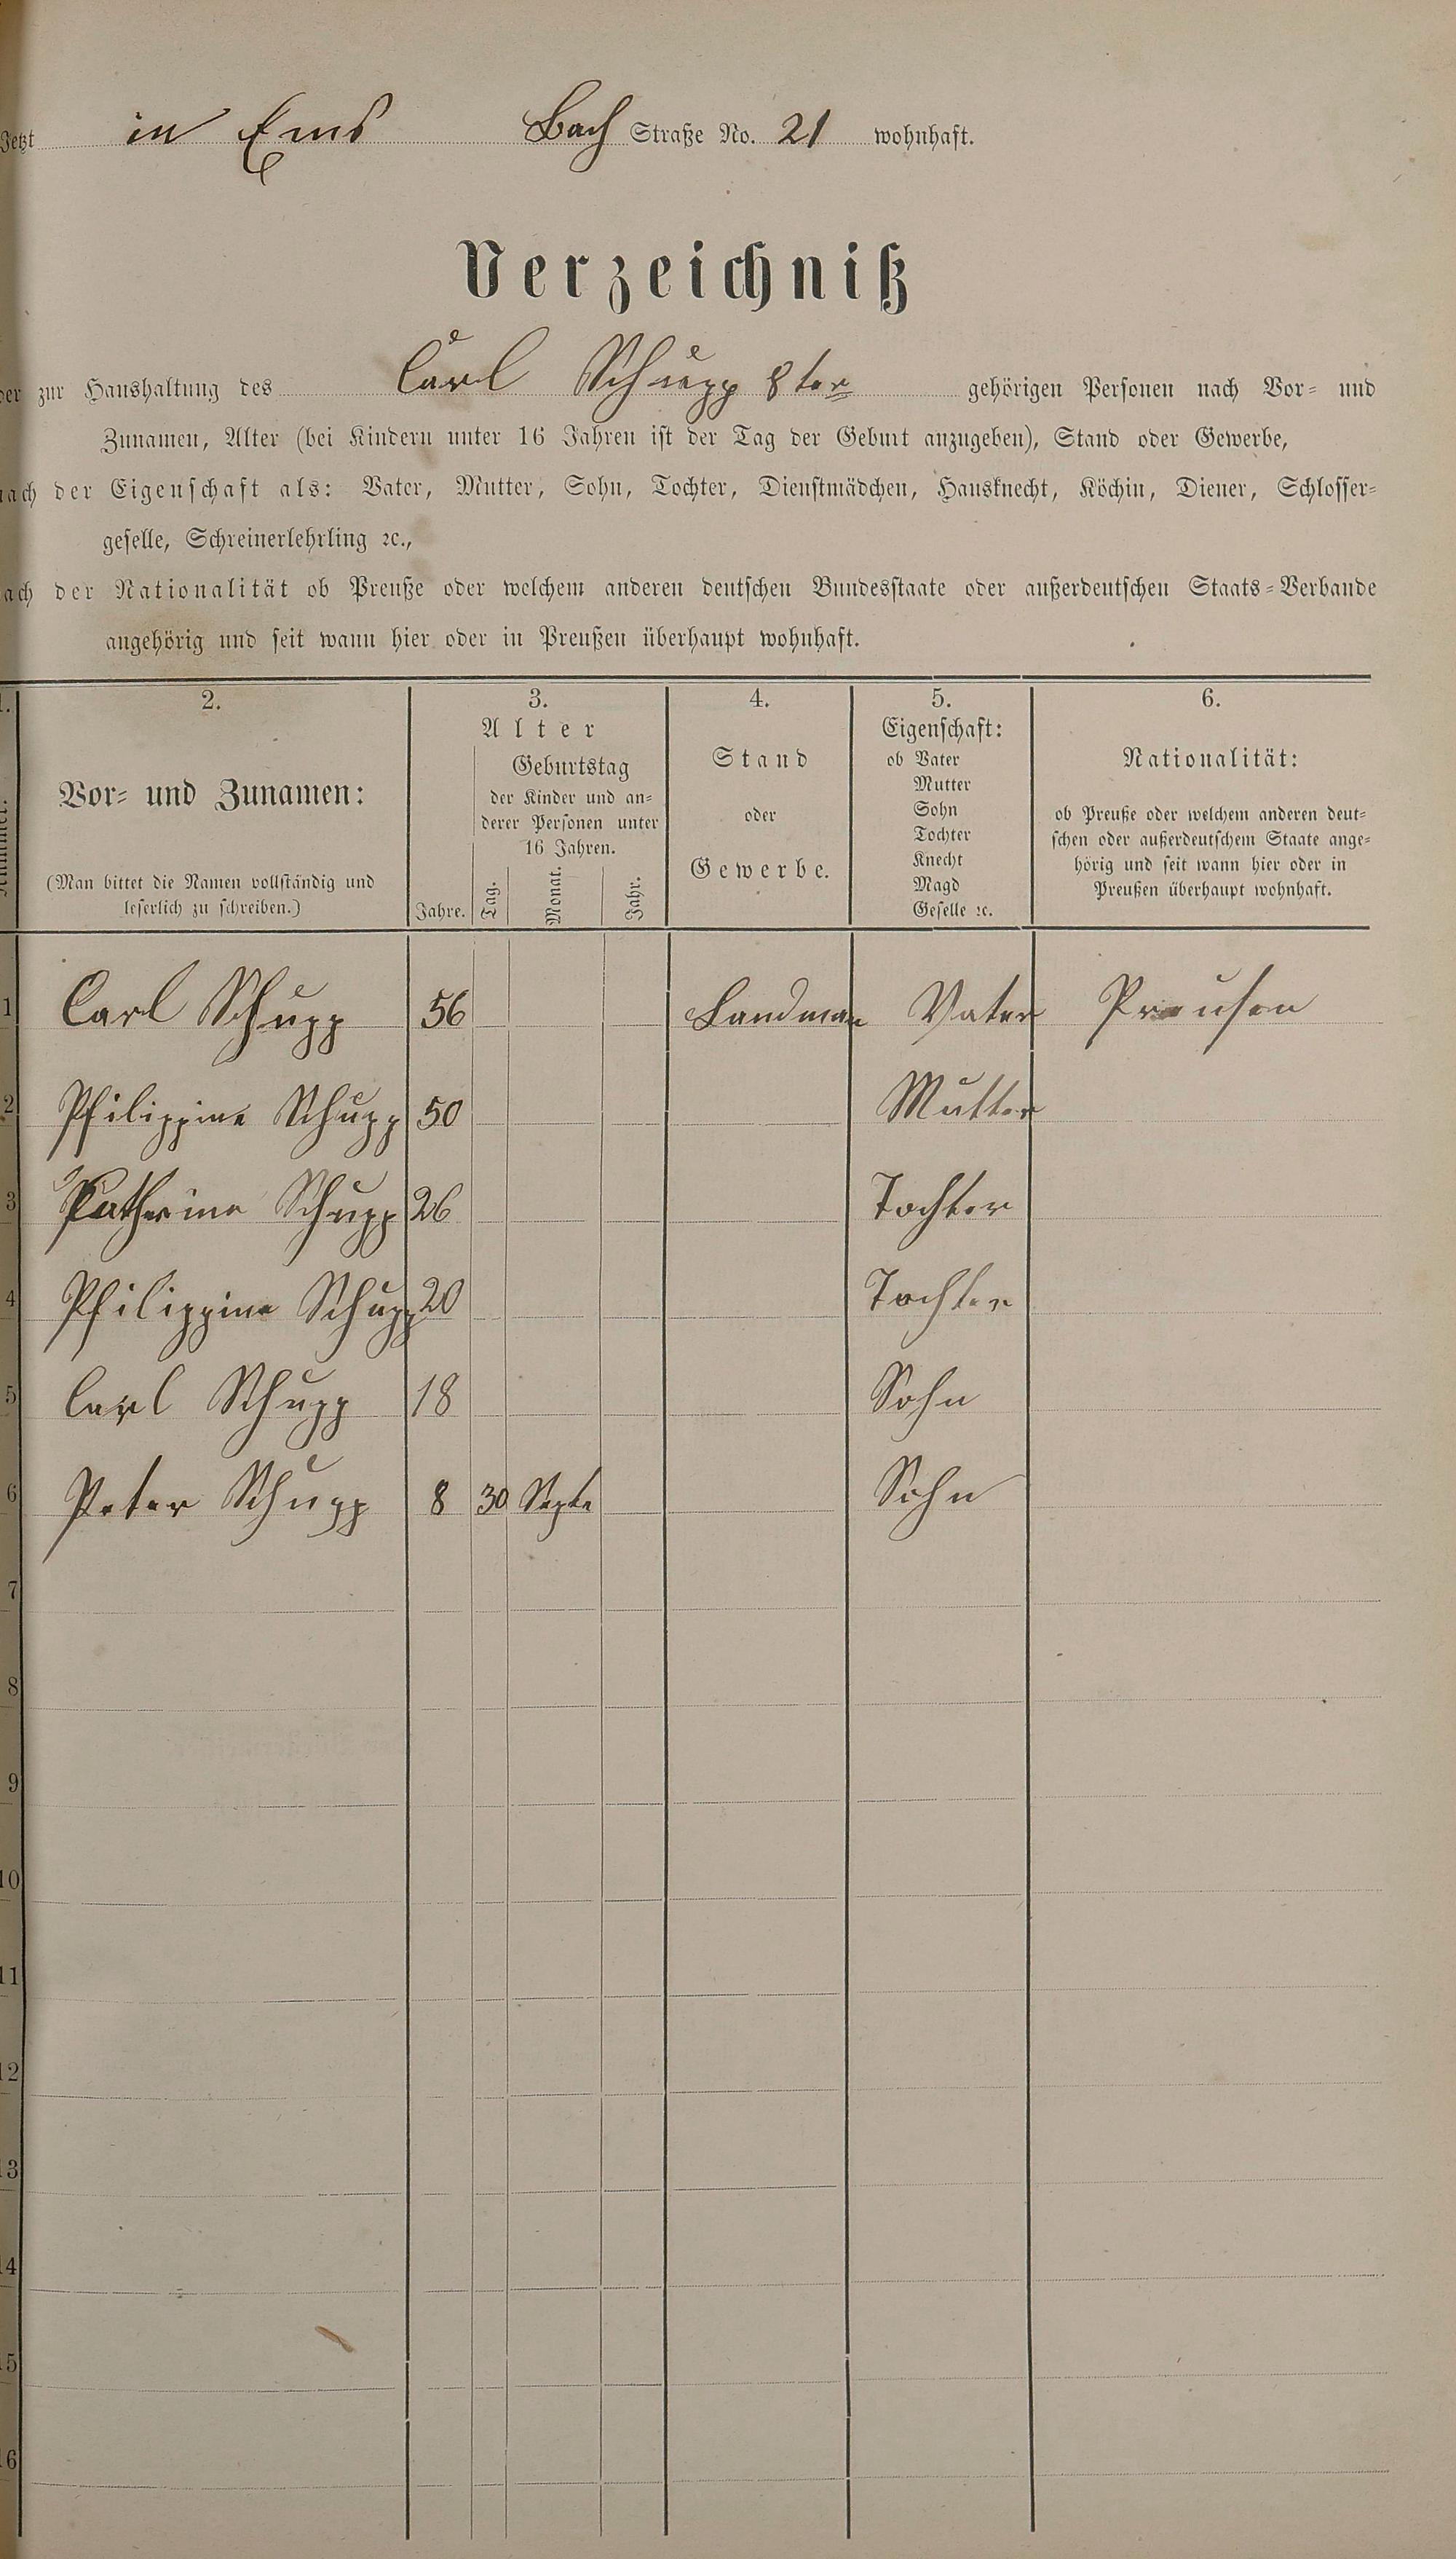 Jetzt in Ems Bach Straße No. 21 wohnhaft.
Verzeichniß
der zur Haushaltung des Carl Schupp 8ter gehörigen Personen nach Vor- und
Zunamen, Alter (bei Kindern unter 16 Jahren ist der Tag der Geburt anzugeben), Stand oder Gewerbe,
nach der Eigenschaft als: Vater, Mutter, Sohn, Tochter, Dienstmädchen, Hausknecht, Köchin, Diener, Schlosser-
geselle, Schreinerlehrling ꝛc.,
nach der Nationalität ob Preuße oder welchem anderen deutschen Bundesstaate oder außerdeutschen Staats-Verbande
angehörig und seit wann hier oder in Preußen überhaupt wohnhaft.
1. 2. 3. 4. 5. 6.
Nummer.
Vor- und Zunamen:
(Man bittet die Namen vollständig und
leserlich zu schreiben.)
Alter
Jahre.
Geburtstag
der Kinder und an-
derer Personen unter
16 Jahren.
Tag. Monat. Jahr.
Stand
oder
Gewerbe.
Eigenschaft:
ob Vater
Mutter
Sohn
Tochter
Knecht
Magd
Geselle ꝛc.
Nationalität:
ob Preuße oder welchem anderen deut-
schen oder außerdeutschem Staate ange-
hörig und seit wann hier oder in
Preußen überhaupt wohnhaft.
1 Carl Schupp 56 Landman Vater Preusen
2 Philippine Schupp 50 Mutter
3 Katherine Schupp 26 Tochter
4 Philippine Schupp 20 Tochter
5 Carl Schupp 18 Sohn
6 Peter Schupp 8 30 Septe Sohn
7
8
9
10
11
12
13
14
15
16